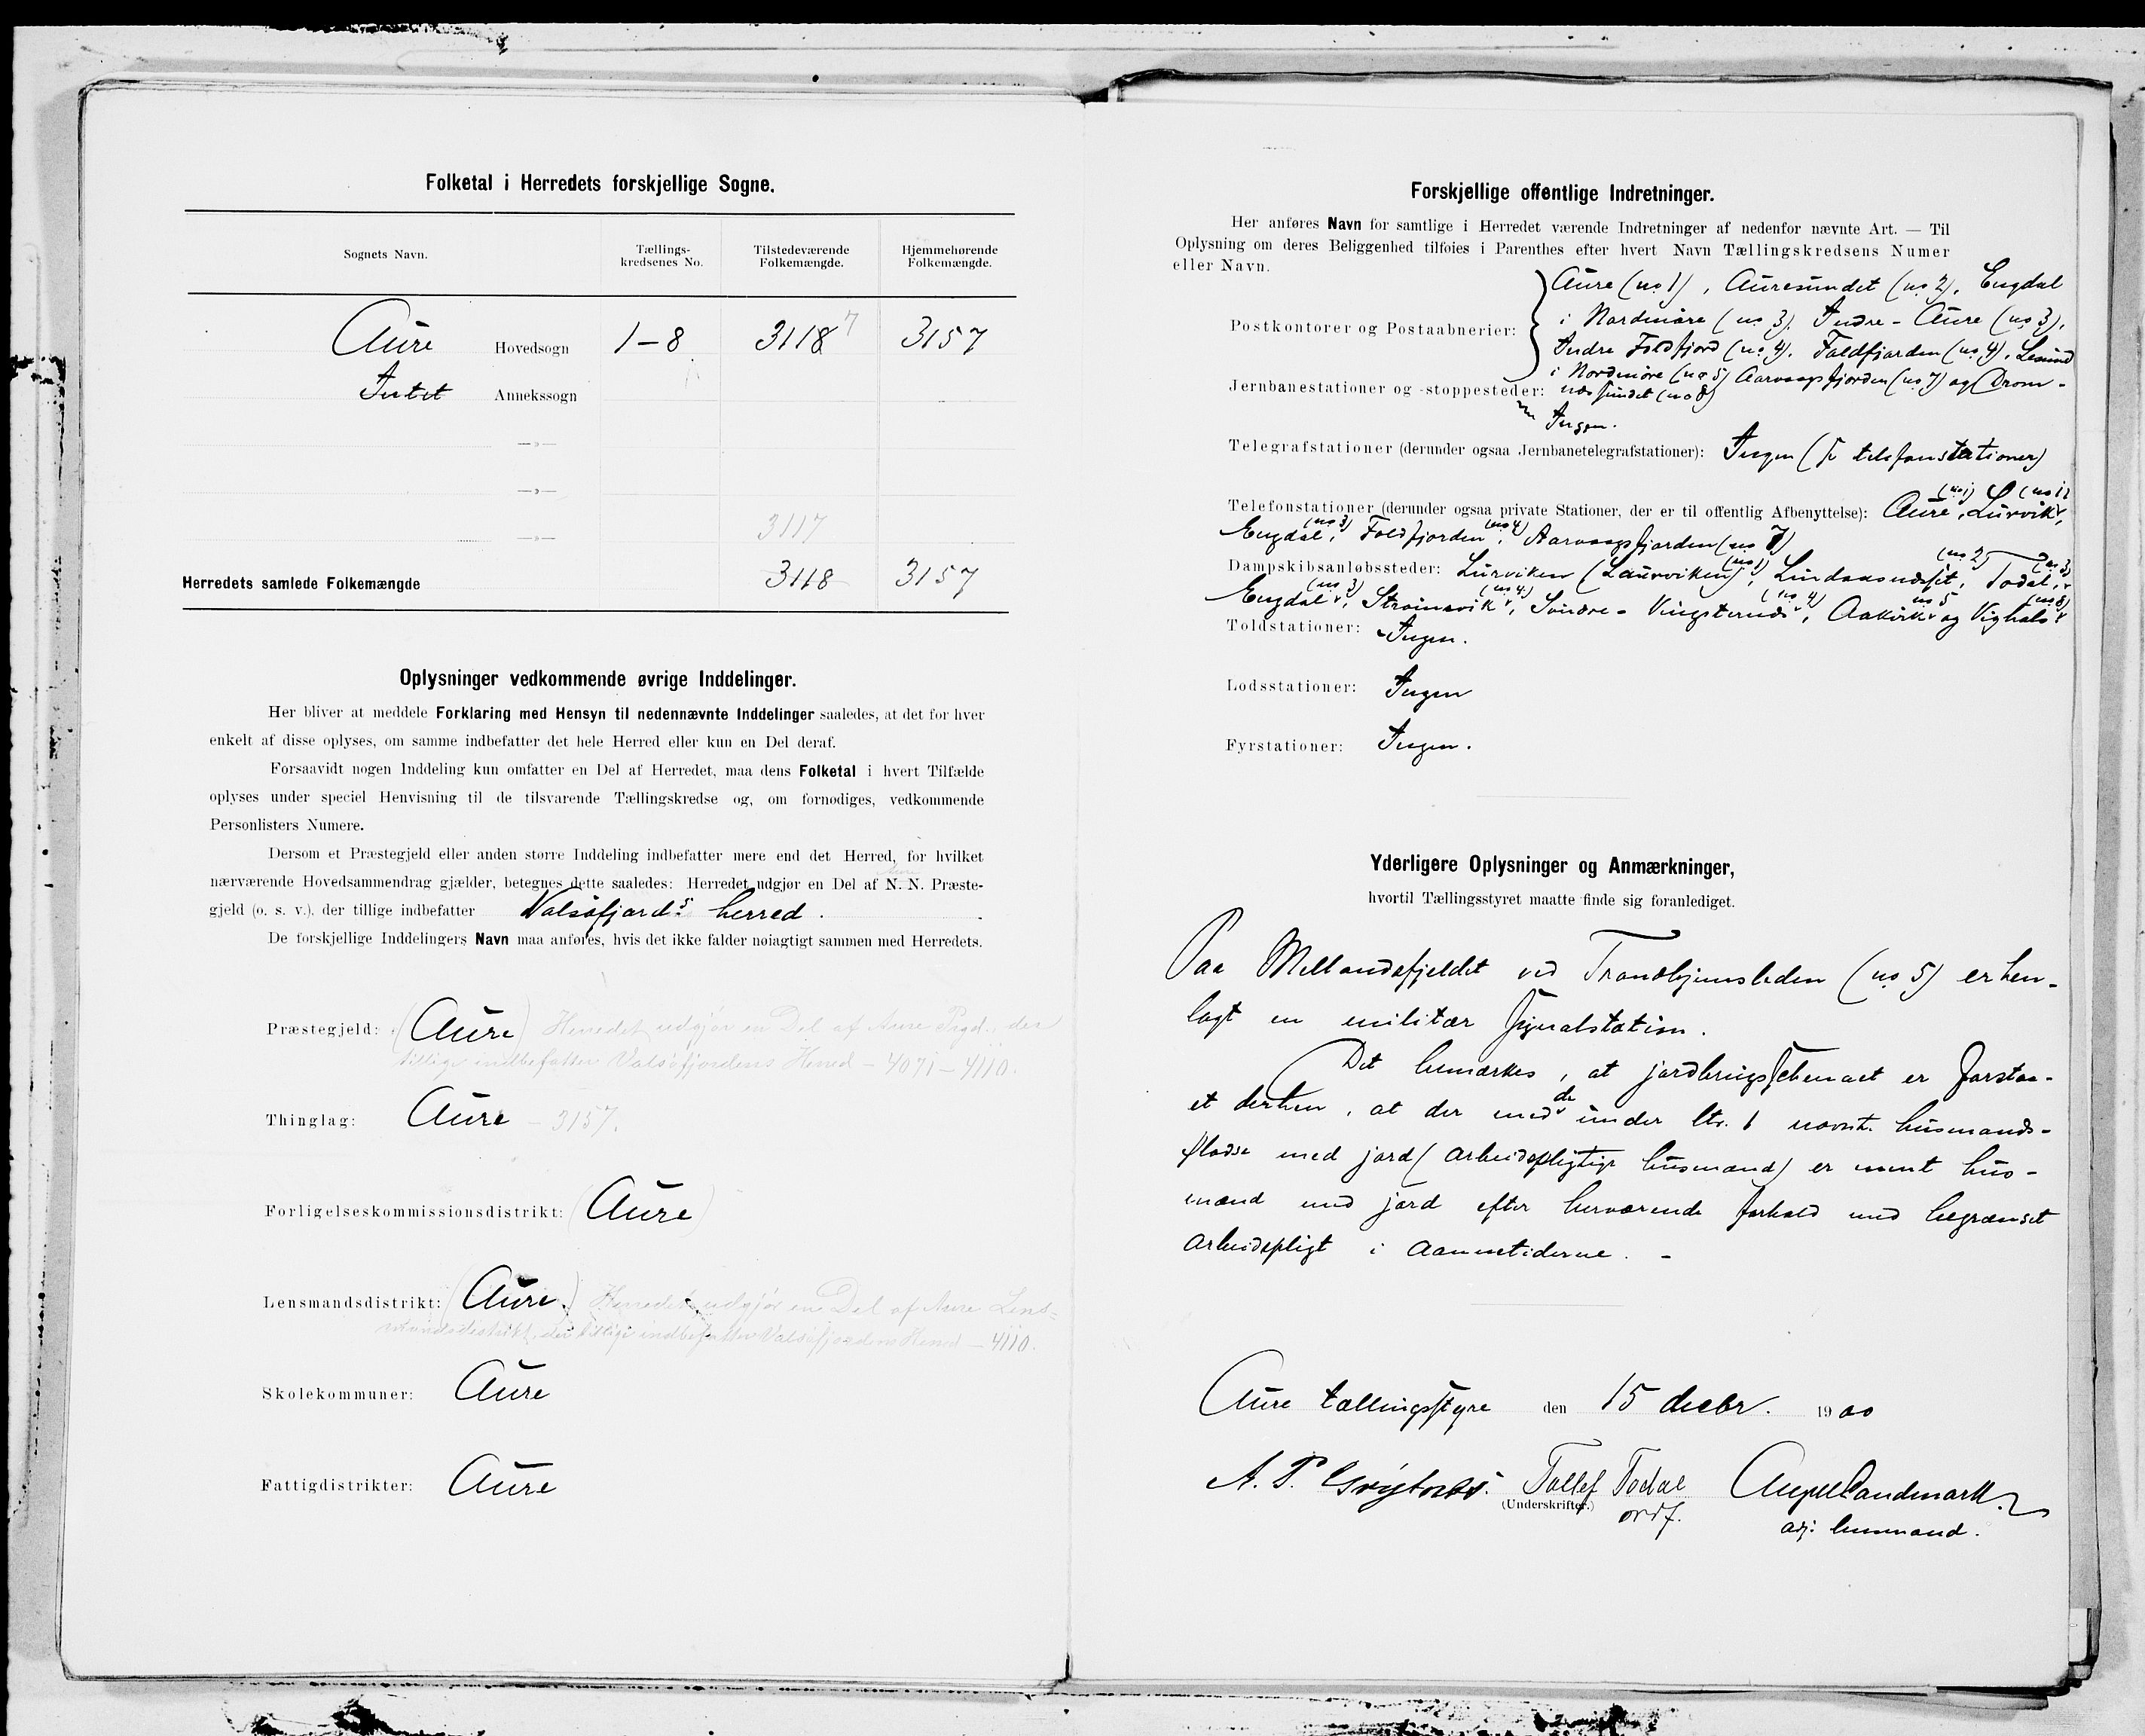 Folketal i Herredets forskjellige Sogne.
Sognets Navn.
Tællings-
kredsenes No.
Tilstedeværende
Folkemængde.
Hjemmehørende
Folkemængde.
Aure Hovedsogn 1-8 3118 7 3157
Intet Annekssogn
—»—
—»—
3117
—»—
Herredets samlede Folkemængde 3118 3157
Oplysninger vedkommende øvrige Inddelinger.
Her bliver at meddele Forklaring med Hensyn til nedennævnte Inddelinger saaledes, at det for hver
enkelt af disse oplyses, om samme indbefatter det hele Herred eller kun en Del deraf.
Forsaavidt nogen Inddeling kun omfatter en Del af Herredet, maa dens Folketal i hvert Tilfælde
oplyses under speciel Henvisning til de tilsvarende Tællingskredse og, om fornødiges, vedkommende
Personlisters Numere.
Dersom et Præstegjeld eller anden større Inddeling indbefatter mere end det Herred, for hvilket
Aure
nærværende Hovedsammendrag gjælder, betegnes dette saaledes: Herredet udgjør en Del af N. N. Præste-
gjeld (o. s. v.), der tillige indbefatter Valsøfjords herred.
De forskjellige Inddelingers Navn maa anføres, hvis det ikke falder nøiagtigt sammen med Herredets.
Præstegjeld: (Aure) Herredet udgjør en Del af Aure Prgd., der
tillige indbefatter Valsøfjordens Herred - 4071 - 4110.
Thinglag: Aure - 3157.
Forligelseskommissionsdistrikt: (Aure)
Lensmandsdistrikt: (Aure.) Herredet udgjør en Del af Aure Lens-
mandsdistrikt, der tillige indbefatter Valsøfjordens Herred - 4110.
Skolekommuner: Aure
Fattigdistrikter: Aure
Forskjellige offentlige Indretninger.
Her anføres Navn for samtlige i Herredet værende Indretninger af nedenfor nævnte Art. — Til
Oplysning om deres Beliggenhed tilføies i Parenthes efter hvert Navn Tællingskredsens Numer
eller Navn.
Aure (no 1), Auresundet (no 2), Engdal
i Nordmøre (no 3), Indre-Aure (no 3),
Postkontorer og Postaabnerier:
Indre Foldfjord (no 4), Foldfjorden (no 4), Lesund
i Nordmøre (no 5) Aarvaagsfjorden (no 7) og Drom-
Jernbanestationer og -stoppesteder: næssundet (no 8)
Ingen.
Telegrafstationer (derunder ogsaa Jernbanetelegrafstationer): Ingen (5 telefonstationer)
Telefonstationer (derunder ogsaa private Stationer, der er til offentlig Afbenyttelse): Aure (no 1), Lurvik (no 1),
Engdal (no 3), Foldfjorden (no 4), Aarvaagsfjorden (no 7)
Dampskibsanløbssteder: Lurviken (Laurviken) (no 1), Lindaasnæsset (no 2), Todal (no 3),
Engdal (no 3), Strømsvik (no 4), Søndre-Vingsternes (no 4), Aakvik no 5 og Vighals (no 8)
Toldstationer: Ingen.
Lodsstationer: Ingen
Fyrstationer: Ingen.
Yderligere Oplysninger og Anmærkninger,
hvortil Tællingsstyret maatte finde sig foranlediget.
Paa Mellandsfjeldet ved Trondhjemsleden (no 5) er hen-
lagt en militær signalstation.
Det bemærkes, at jordbrugsschemaet er forstaa-
et derhen, at der med de under ltr. b nævnt. husmands-
pladse med jord (arbeidspligtige husmænd) er ment hus-
mænd med jord efter herværende forhold med begrænset
arbeidspligt i aannetiderne. -
Aure tællingsstyre den 15 decbr. 1900
A. P. Tollef Todal Landmark
(Underskrifter.) ordf.
adj: lensmand.